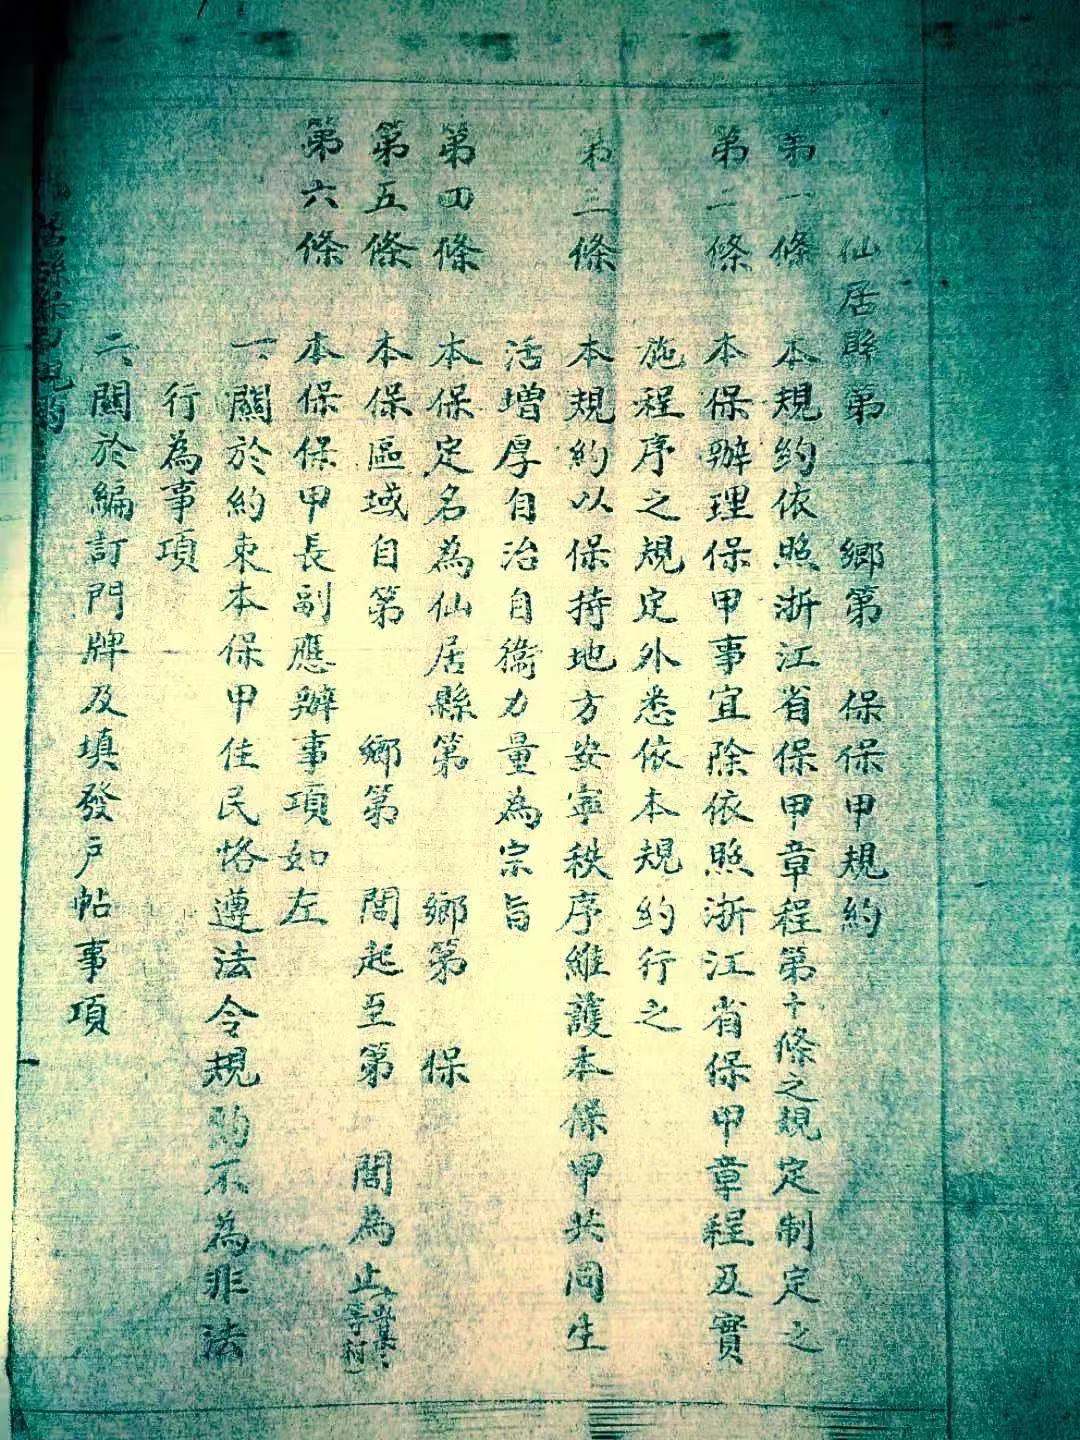 仙居縣第　鄉第　保保甲規約
第一條　本規約依照浙江省保甲章程第十條之規定制定之
第二條　本保辦理保甲事宜除依照浙江省保甲章程及實
施程序之規定外悉依本規約行之
第三條　本規約以保持地方安寧秩序維護本保甲共同生
活增厚自治自衛力量為宗旨
第四條　本保定名為仙居縣第　鄉第　保
第五條　本保區域自第　鄉第　閭起至第　閭為止
第六條　本保保甲長副應辦事項如左
一、關於約束本保甲住民恪遵法令規約不為非法
行為事項
二、關於編訂門牌及填發戶帖事項
居縣保甲規約